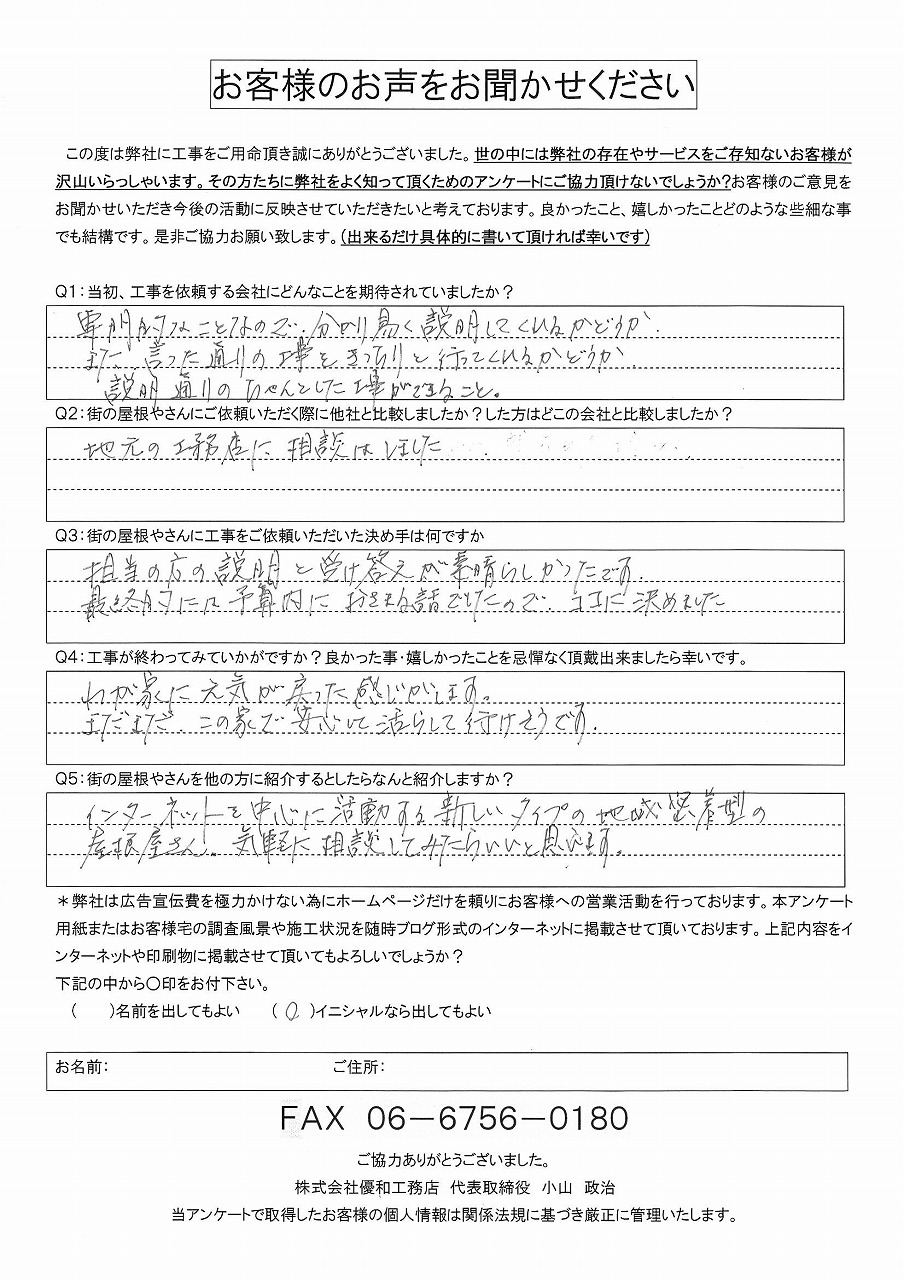 お客様のお声をお聞かせください
この度は弊社に工事をご用命頂き誠にありがとうございました。世の中には弊社の存在やサービスをご存知ないお客様が
沢山いらっしゃいます。その方たちに弊社をよく知って頂くためのアンケートにご協力頂けないでしょうか?お客様のご意見を
お聞かせいただき今後の活動に反映させていただきたいと考えております。良かったこと、嬉しかったことどのような些細な事
でも結構です。是非ご協力お願い致します。(出来るだけ具体的に書いて頂ければ幸いです)
Q1:当初、工事を依頼する会社にどんなことを期待されていましたか?
専門的なことなので、分かり易く説明してくれるかどうか.
また、言った通りの工事をきっちりと行ってくれるかどうか
説明通りのちゃんとした工事ができること。
Q2:街の屋根やさんにご依頼いただく際に他社と比較しましたか?した方はどこの会社と比較しましたか?
地元の工務店に相談はしました
Q3:街の屋根やさんに工事をご依頼いただいた決め手は何ですか
担当の方の説明と受け答えが素晴らしかったです.
最終的には予算内におさまる話でしたので、ココに決めました
Q4:工事が終わってみていかがですか?良かった事・嬉しかったことを忌憚なく頂戴出来ましたら幸いです。
わが家に元気が戻った感じがします。
まだまだ、この家で安心して活らして行けそうです.
Q5:街の屋根やさんを他の方に紹介するとしたらなんと紹介しますか?
インターネットを中心に活動する新しいタイプの地域密着型の
屋根屋さん。気軽に相談してみたらいいと思います。
*弊社は広告宣伝費を極力かけない為にホームページだけを頼りにお客様への営業活動を行っております。本アンケート
用紙またはお客様宅の調査風景や施工状況を随時ブログ形式のインターネットに掲載させて頂いております。上記内容をイ
ンターネットや印刷物に掲載させて頂いてもよろしいでしょうか?
下記の中から〇印をお付下さい。
(　)名前を出してもよい　(〇)イニシャルなら出してもよい
お名前:　ご住所:
FAX 06-6756-0180
ご協力ありがとうございました。
株式会社優和工務店　代表取締役　小山　政治
当アンケートで取得したお客様の個人情報は関係法規に基づき厳正に管理いたします。